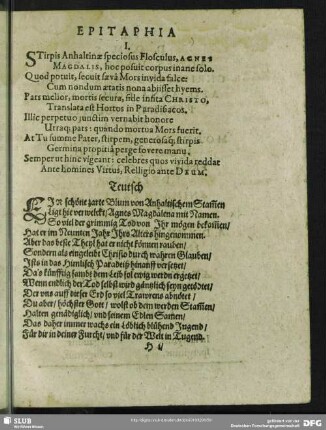 EPITAPHIA
I.
STirpis Anhaltinæ speciosus Flosculus, AGNES
MAGDALIS, hoc posuit corpus inane solo.
Quod potuit, secuit sævâ Mors invida falce:
Cum nondum ætatis nona abiisset hyems.
Pars melior, mortis secura, stite insita CHRISTO,
Translata est Hortos in Paradisacos.
Illic perpetuò junctim vernabit honore
Utraq; pars: quando mortua Mors fuerit.
At Tu summe Pater, stirpem, generosaq́; stirpis
Germina propitiâ perge fovere manu:
Semper ut hinc vigeant: celebres quos vivida reddat
Ante homines Virtus, Relligio ante DEUM.
Teutsch
EIn schöne zarte Blum von Anhaltischem Stam̃en
Ligt hie verwelckt/ Agnes Magdalena mit Namen.
So viel der grimmig Tod von Ihr mögen bekom̃en/
Hat er im Neunten Jahr Ihrs Alters hingenommen.
Aber das beste Theyl hat er nicht können rauben/
Sondern als eingeleibt Christo durch wahren Glauben/
Ists in das Himlisch Paradeiß hinauff versetzet/
Da's künfftig sambt dem Leib sol ewig werden ergetzet/
Wenn endlich der Tod selbst wird gäntzlich seyn getödtet/
Der uns auff dieser Erd so viel Trawrens abnötet/
Du aber/ höchster Gott/ wollst ob dem werden Stam̃en/
Halten genädiglich/ und seinem Edlen Samen/
Das daher immer wachs ein Löblich blühend Jugend/
Für dir in deiner Furcht/ und für der Welt in Tugend.
SLUB
Wir führen Wissen.
Deutsche Forschungsgemeinschaft
gefördert von der
DFG